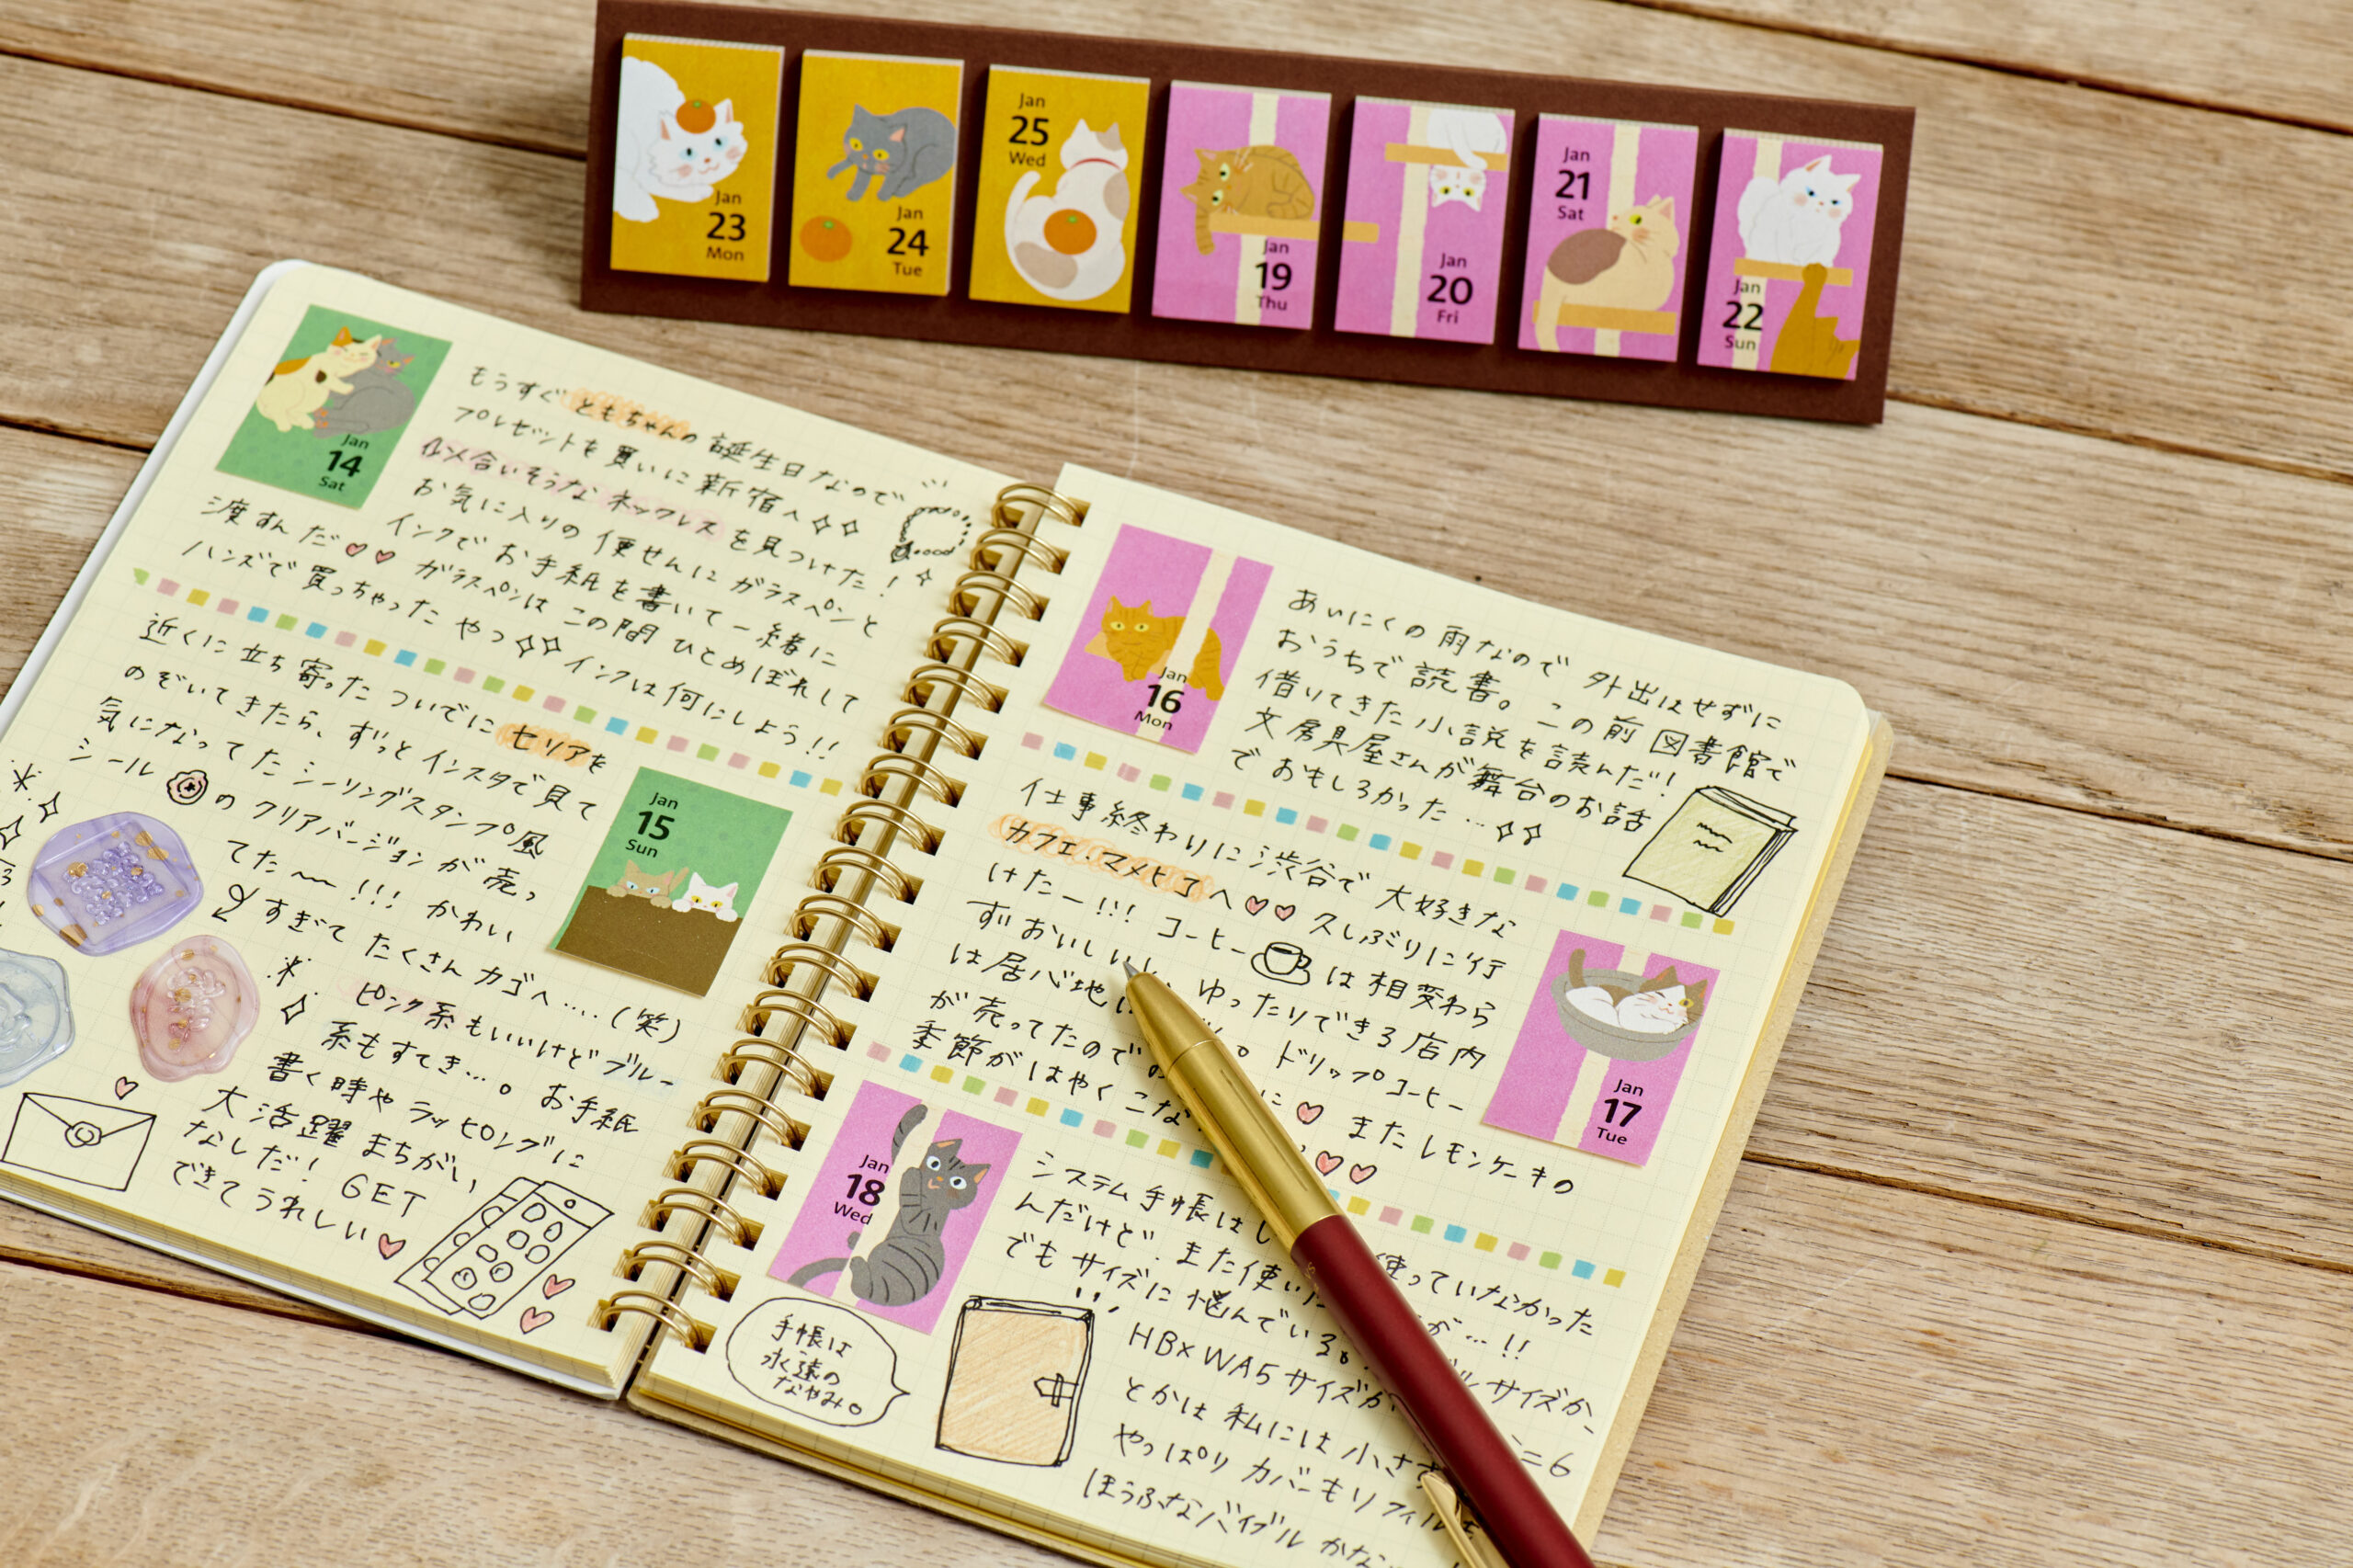 Jan
23
Mon
Jan
24
Tue
Jan
25
Wed
Jan
19
Thu
Jan
20
Fri
Jan
21
Sat
Jan
22
Sun
Jan
14
Sat
もうすぐ ともちゃんの 誕生日なので
プレゼントを 買いに 新宿へ
似合いそうな ネックレスを見つけた!
お気に入りの 便せんに ガラスペンと
インクで お手紙を 書いて 一緒に
渡すんだ♡♡ ガラスペンは この間 ひとめぼれして
ハンズで 買っちゃった やつ インクは 何にしよう!!
近くに 立ち寄った ついでに セリアを
のぞいてきたら、ずっと インスタで見て
気になってた シーリングスタンプ風
シール の クリアバージョンが 売っ
てた〜 !!! かわい
すぎて たくさん カゴへ....(笑)
ピンク系もいいけど ブルー
系もすてき...。 お手紙
書く時や ラッピングに
大活躍 まちがい
なしだ! GET
できて うれしい♡
Jan
15
Sun
Jan
16
Mon
あいにくの 雨なので 外出はせずに
おうちで 読書。この前 図書館で
借りてきた 小説を読んだ!
文房具屋さんが 舞台のお話
で おもしろかった...
仕事終わりに 渋谷で 大好きな
カフェ・マメヒコ へ♡♡ 久しぶりに行
けたー!!! コーヒー は 相変わら
ずおいしい ゆったりできる 店内
は 居心地 。 ドリップコーヒー
が 売ってたので に♡ また レモンケーキの
季節が はやく こな ♡♡
Jan
17
Tue
Jan
18
Wed
システム手帳は 使っていなかった
んだけど、また使い が...!!
でも サイズに 悩んでいる。 サイズか、
HB×WA5 サイズか =6
とかは 私には 小さ
やっぱり カバーも リフィル
ほうふな バイブル かな
手帳は
永遠の
なやみ。